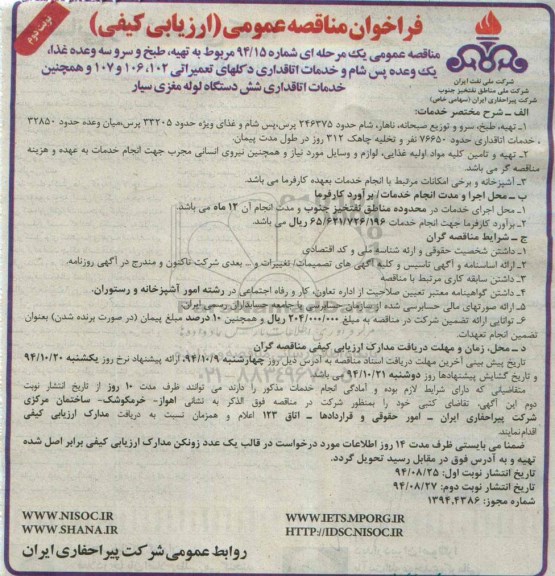 نوبت دوم
فراخوان مناقصه عمومی (ارزیابی کیفی)
مناقصه عمومی یک مرحله ای شماره ۹۴/۱۵ مربوط به تهیه، طبخ و سرو سه وعده غذا،
یک وعده پس شام و خدمات اتاقداری دکلهای تعمیراتی ۱۰۲، ۱۰۶ و ۱۰۷ و همچنین
خدمات اتاقداری شش دستگاه لوله مغزی سیار
شرکت ملی نفت ایران
شرکت ملی مناطق نفتخیز جنوب
شرکت پیراحفاری ایران (سهامی خاص)
الف ـ شرح مختصر خدمات:
۱ـ تهیه، طبخ، سرو و توزیع صبحانه، ناهار، شام حدود ۲۴۶۳۷۵ پرس، پس شام و غذای ویژه حدود ۳۳۲۰۵ پرس، میان وعده حدود ۳۲۸۵۰
، خدمات اتاقداری حدود ۷۶۶۵۰ نفر و تخلیه چاهک ۳۱۲ روز در طول مدت پیمان.
۲ـ تهیه و تامین کلیه مواد اولیه غذایی، لوازم و وسایل مورد نیاز و همچنین نیروی انسانی مجرب جهت انجام خدمات به عهده و هزینه
مناقصه گر می باشد.
۳ـ آشپزخانه و برخی امکانات مرتبط با انجام خدمات بعهده کارفرما می باشد.
ب ـ محل اجرا و مدت انجام خدمات/ برآورد کارفرما
۱ـ محل اجرای خدمات در محدوده مناطق نفتخیز جنوب و مدت انجام آن ۱۲ ماه می باشد.
۲ـ برآورد کارفرما جهت انجام خدمات ۶۵/۶۳۱/۷۲۶/۱۹۶ ریال می باشد.
ج ـ شرایط مناقصه گران
۱ـ داشتن شخصیت حقوقی و ارئه شناسه ملی و کد اقتصادی
۲ـ ارائه اساسنامه و آگهی تاسیس و کلیه آگهی های تصمیمات/ تغییرات و ... بعدی شرکت تاکنون و مندرج در آگهی روزنامه.
۳ـ داشتن سابقه کاری مرتبط با مناقصه
۴ـ داشتن گواهینامه معتبر تعیین صلاحیت از اداره تعاون، کار و رفاه اجتماعی در رشته امور آشپزخانه و رستوران.
۵ـ ارائه صورتهای مالی حسابرسی شده از سازمان حسابرسی یا جامعه حسابداران رسمی ایران
۶ـ توانایی ارائه تضمین شرکت در مناقصه به مبلغ ۲۰۴/۰۰۰/۰۰۰ ریال و همچنین ۱۰ درصد مبلغ پیمان (در صورت برنده شدن) بعنوان
تضمین انجام تعهدات.
د ـ محل، زمان و مهلت دریافت مدارک ارزیابی کیفی مناقصه گران
تاریخ پیش بینی آخرین مهلت دریافت اسناد مناقصه به آدرس ذیل روز چهارشنبه ۹۴/۱۰/۹، ارائه پیشنهاد نرخ روز یکشنبه ۹۴/۱۰/۲۰
و تاریخ گشایش پیشنهادها روز دوشنبه ۹۴/۱۰/۲۱ می باشد.
متقاضیانی که دارای شرایط لازم بوده و آمادگی انجام خدمات مذکور را دارند می توانند ظرف مدت ۱۰ روز از تاریخ انتشار نوبت
دوم این آگهی، تقاضای کتبی خود را بمنظور شرکت در مناقصه فوق الذکر به نشانی اهواز- خرمکوشک- ساختمان مرکزی
شرکت پیراحفاری ایران ـ امور حقوقی و قراردادها ـ اتاق ۱۲۳ اعلام و همزمان نسبت به دریافت مدارک ارزیابی کیفی
اقدام نمایند.
ضمنا می بایستی ظرف مدت ۱۴ روز اطلاعات مورد درخواست در قالب یک عدد زونکن مدارک ارزیابی کیفی برابر اصل شده
تهیه و به آدرس فوق در مقابل رسید تحویل گردد.
تاریخ انتشار نوبت اول: ۹۴/۰۸/۲۵
تاریخ انتشار نوبت دوم: ۹۴/۰۸/۲۷
شماره مجوز: ۱۳۹۴.۴۳۸۶
WWW.NISOC.IR
WWW.IETS.MPORG.IR
WWW.SHANA.IR
HTTP://IDSC.NISOC.IR
روابط عمومی شرکت پیراحفاری ایران